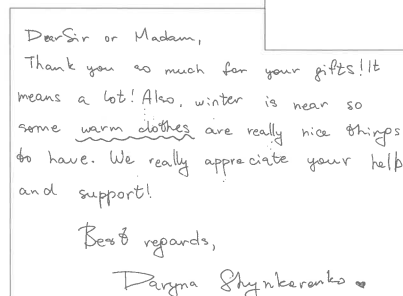 Dear Sir or Madam,
Thank you so much for your gifts! It
means a lot! Also, winter is near so
some warm clothes are really nice things
to have. We really appreciate your help
and support!
Best regards,
Daryna Shynkarenko